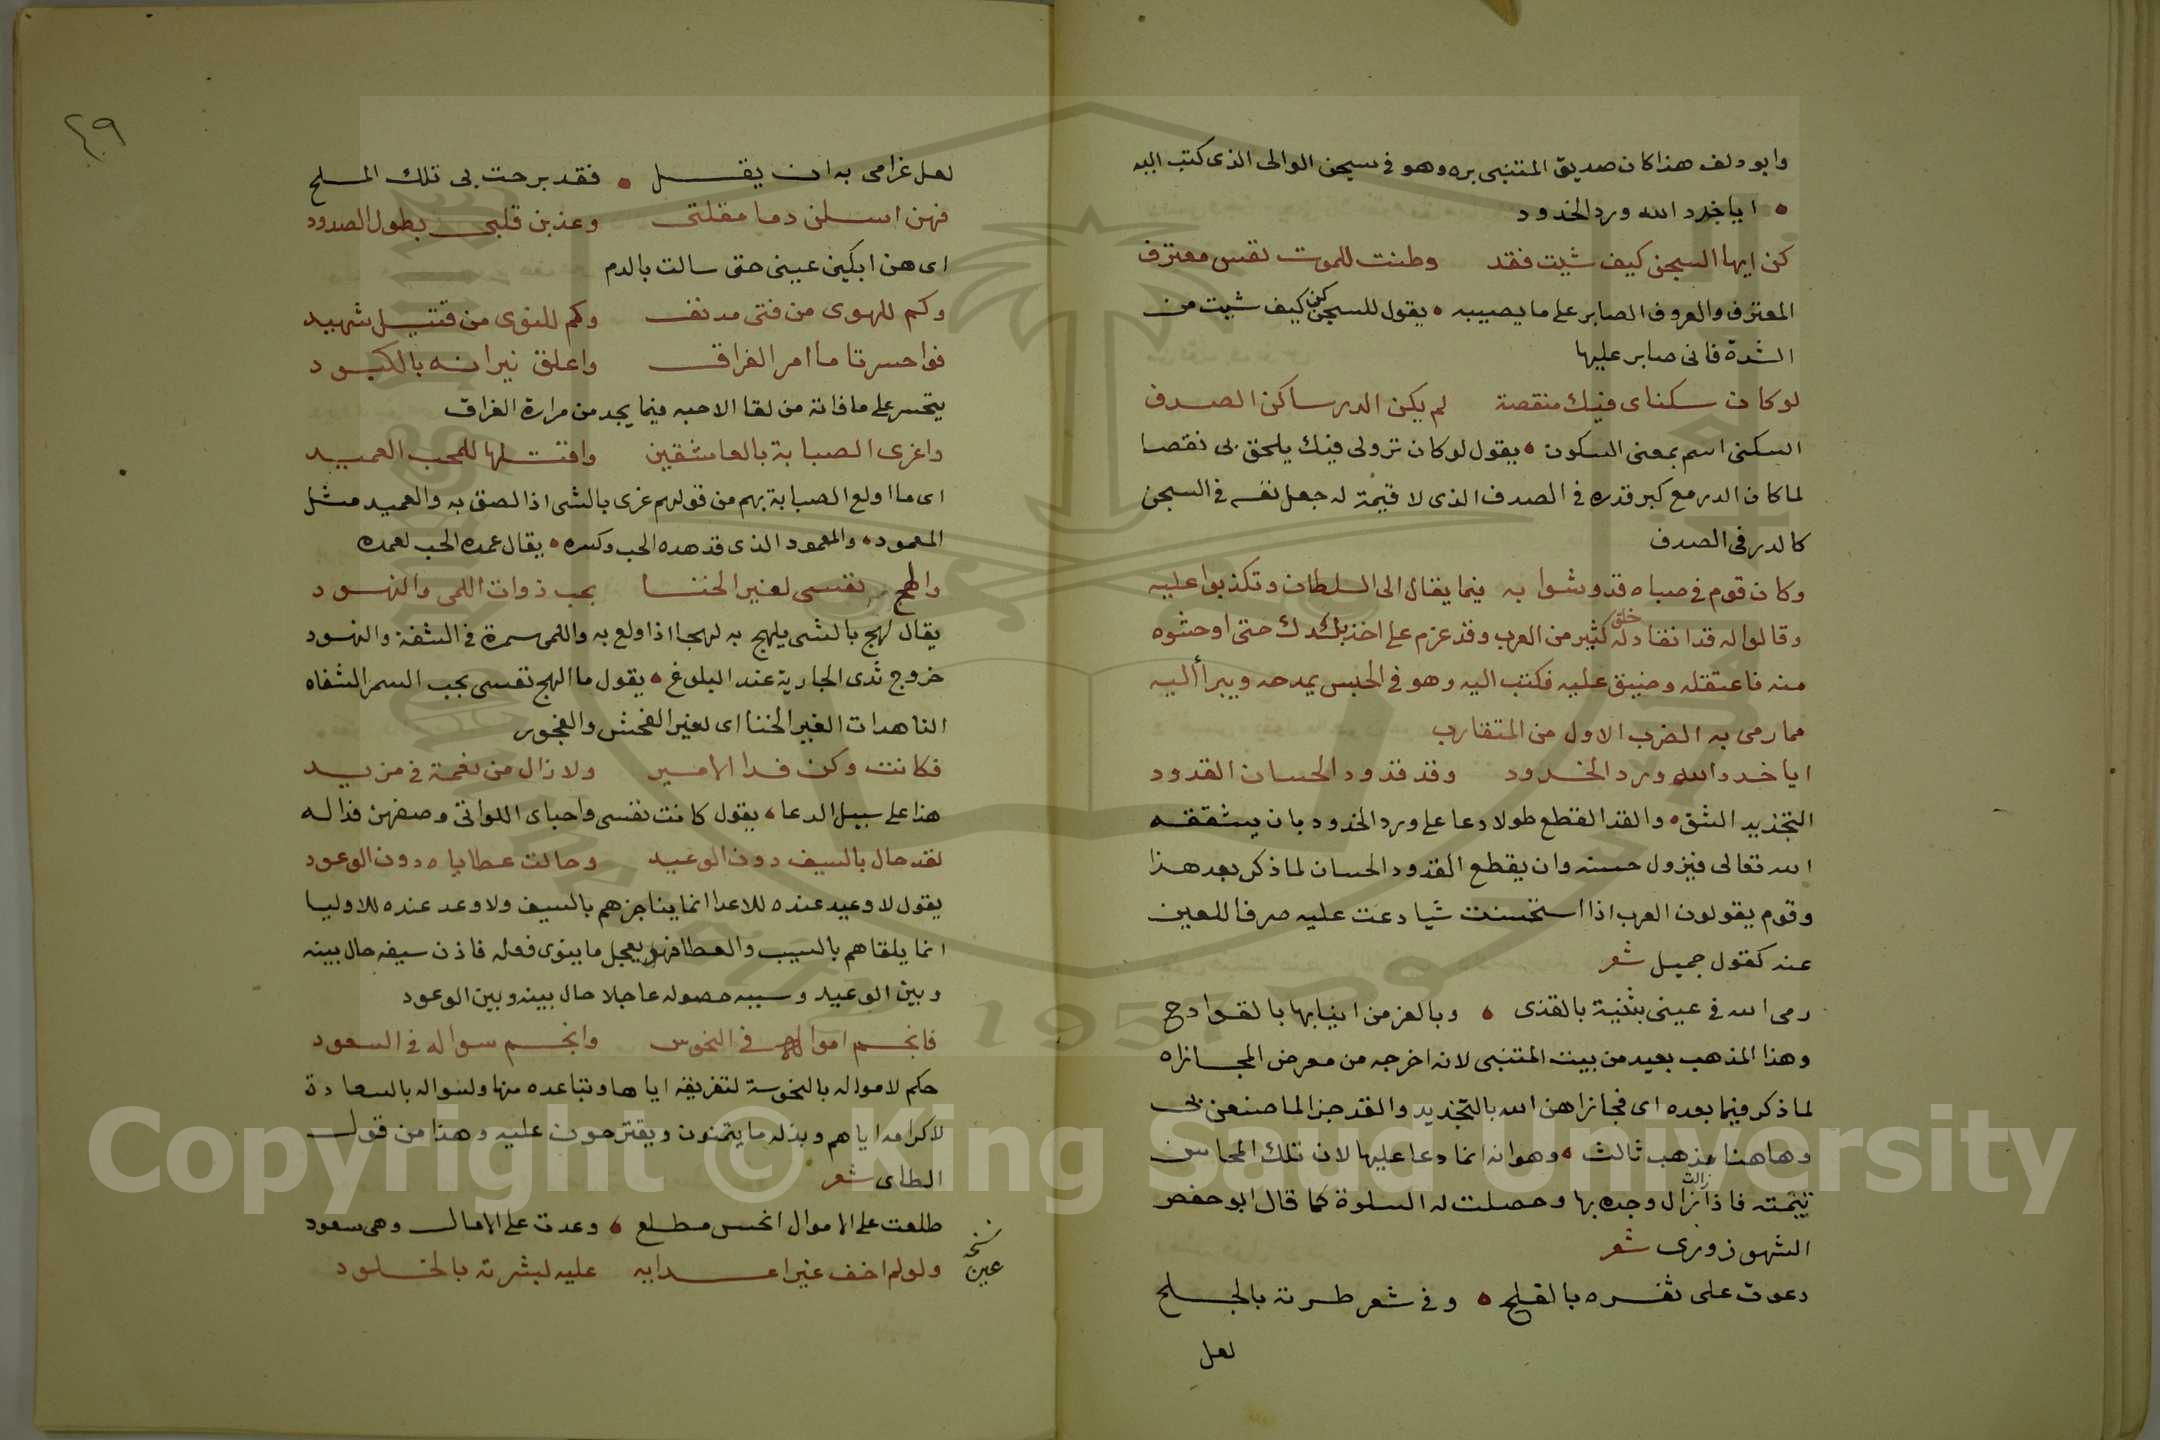 وابو دلف هذا كان صديق المتنبى بره وهو فى سجن الوالى الذى كتب اليه
ايا خدد الله ورد الخدود
كن ايها السجن كيف شيت فقد وطنت للموت نفس معترف
المعترف والعروف الصابر على ما يصيبه يقول للسجن كن كيف شيت من
الشدة فانى صابر عليها
لو كان سكناى فيك منقصة لم يكن الدر ساكن الصدف
السكنى اسم بمعنى السكون يقول لو كان نزولى فيك يلحق بى نقصا
لما كان الدر مع كبر قدره فى الصدف الذى لا قيمة له جعل نفسه فى السجن
كالدر فى الصدف
وكان قوم فى صباه قد وشوا به فيما يقال الى السلطان وتكذبوا عليه
وقالوا له قد انقاد له خلق كثير من العرب وقد عزم على اخذ بلدك حتى اوحشوه
منه فاعتقله وضيق عليه فكتب اليه وهو فى الحبس يمدحه ويبرأ اليه
مما رمى به الضرب الاول من المتقارب
ايا خدد الله ورد الخدود وقد قدود الحسان القدود
التخديد الشق والقد القطع طولا دعا على ورد الخدود بان يشققه
الله تعالى فيزول حسنه وان يقطع القدود الحسان لما ذكر بعد هذا
وقوم يقولون العرب اذا استحسنت شيا دعت عليه صرفا للعين
عنه كقول جميل شعر
رمى الله فى عينى بثنية بالقذى وبالغر من انيابها بالقوادح
وهذا المذهب بعيد من بيت المتنبى لانه اخرجه من معرض المجازاه
لما ذكر فيما بعده اى فجازاهن الله بالتخديد والقد جزا لما صنعن بى
وهاهنا مذهب ثالث وهو انه انما دعا عليها لان تلك المحاسن
تيمته فاذا زالت زال وجده بها وحصلت له السلوة كما قال ابو حفص
الشهرزورى شعر
دعوت على ثغره بالقلح وفى شعر طرته بالجلح
لعل
٢٩
لعل غرامى به ان يقل فقد برحت بى تلك الملح
فهن اسلن دما مقلتى وعذبن قلبى بطول الصدود
اى هن ابكين عينى حتى سالت بالدم
وكم للهوى من فتى مدنف وكم للنوى من قتيل شهيد
فواحسرتا ما امر الفراق واعلق نيرانه بالكبود
يتحسر على ما فاته من لقا الاحبه فيما يجد من مرارة الفراق
واغرى الصبابة بالعاشقين واقتلها للمحب العميد
اى ما اولع الصبابة بهم من قولهم غرى بالشى اذا لصق به والعميد مثل
المعمود والمعمود الذى قد هده الحب وكسره يقال عمده الحب لعمده
والهج نفسى لغير الخنا بحب ذوات اللمى والنهود
يقال لهج بالشى يلهج به لهجا اذا ولع به واللمى سمرة فى الشفة والنهود
خروج ثدى الجارية عند البلوغ يقول ما الهج نفسى بحب السمر الشفاه
الناهدات لغير الخنا اى لغير الفحش والفجور
فكانت وكن فدا الامير ولا زال من نعمة فى مزيد
هذا على سبيل الدعا يقول كانت نفسى واحباى اللواتى وصفهن فدا له
لقد حال بالسيف دون الوعيد وحالت عطاياه دون الوعود
يقول لا وعيد عنده للاعدا انما يناجزهم بالسيف ولا وعد عنده للاوليا
انما يلقاهم بالسيب والعطا فهو يعجل ما ينوى فعله فاذن سيفه حال بينه
وبين الوعيد وسيبه حصوله عاجلا حال بينه وبين الوعود
فانجم امواله فى النحوس وانجم سواله فى السعود
حكم لامواله بالنحوسة لتفريقه اياها وتباعده منها ولسواله بالسعادة
لاكرامه اياهم وبذله ما يتمنون ويقترحون عليه وهذا من قول
الطاى شعر
طلعت على الاموال انحس مطلع وغدت على الامال وهى سعود
ولو لم اخف غير اعدايه عليه لبشرته بالخلود
نسخه عين
Copyright © King Saud University
1957